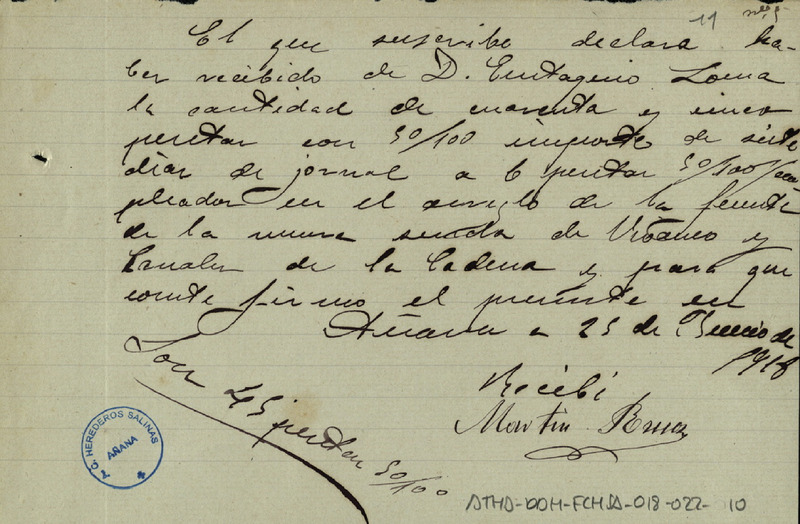 11 nº 9
El que suscribe declara ha-
ber recibido de D. Eustaquio Loma
la cantidad de cuarenta y cinco
pesetas con 50/100 importe de siete
dias de jornal a 6 pesetas 50/100 em
pleados en el arreglo de la fuente
de la nueva senda de y
Canales de la Cadena y para que
conste firmo el presente en
Añana a 25 de Junio de
1918
Recibí
Martin
Son 45 pesetas 50/100
C. HEREDEROS SALINAS
AÑANA
ATHA-DOH-FCHSA-018-022-10